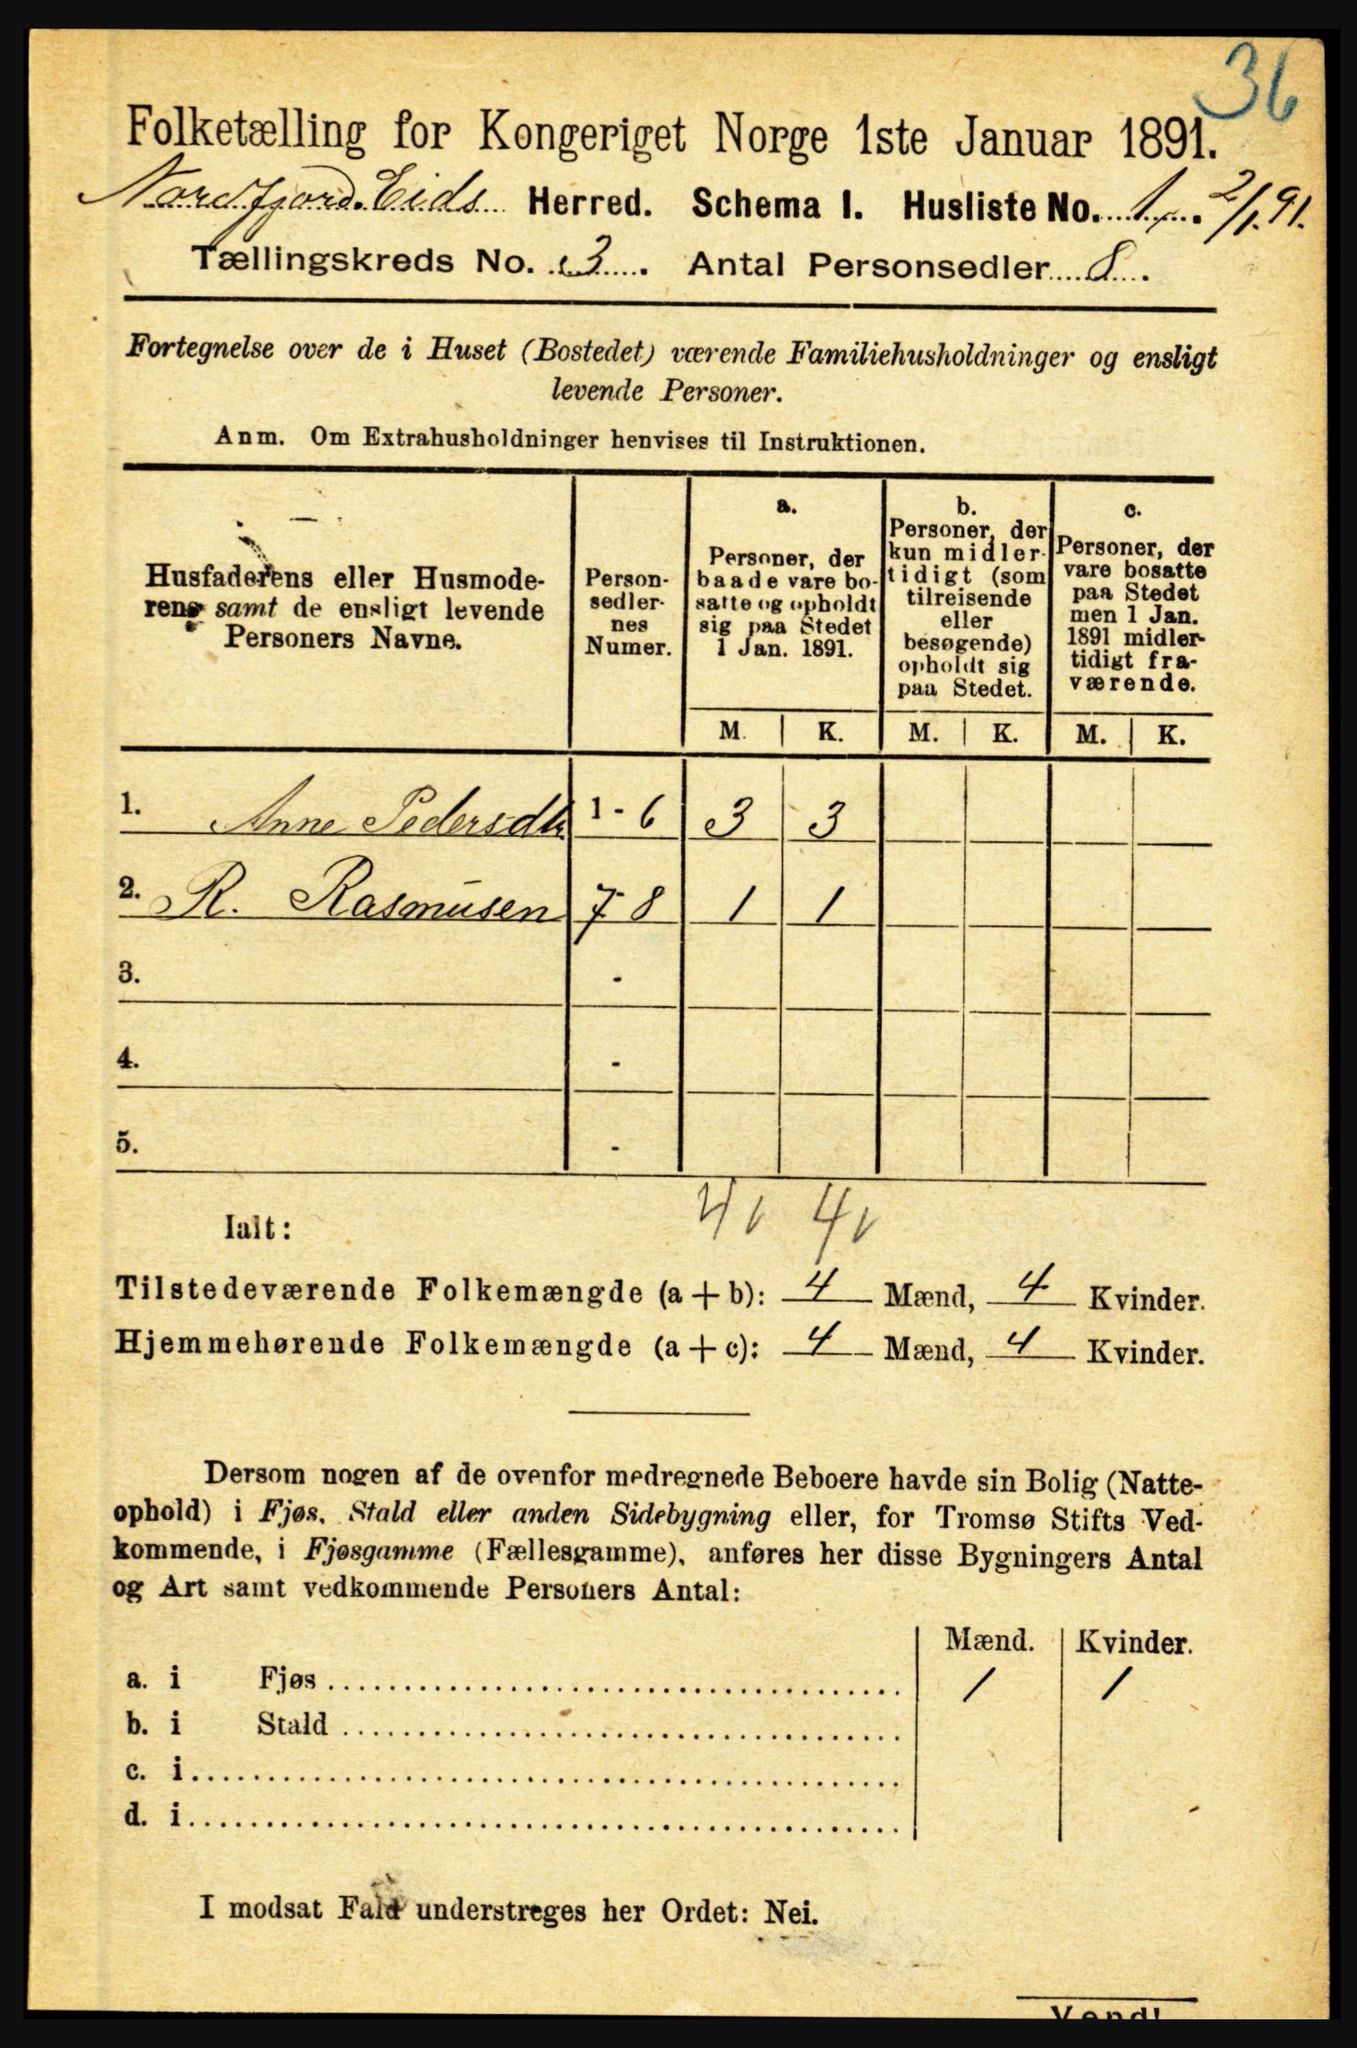 36
Folketælling for Kongeriget Norge 1ste Januar 1891.
Nordfjord.Eids Herred. Schema I. Husliste No. 1. 2/1.91.
Tællingskreds No. 3. Antal Personsedler 8.
Fortegnelse over de i Huset (Bostedet) værende Familiehusholdninger og ensligt
levende Personer.
Anm. Om Extrahusholdninger henvises til Instruktionen.
Husfaderens eller Husmode-
rens samt de ensligt levende
Personers Navne.
Person-
sedler-
nes
Numer.
a.
Personer, der
baade vare bo-
satte og opholdt
sig paa Stedet
1 Jan. 1891.
b.
Personer, der
kun midler-
tidigt (som
tilreisende
eller
besøgende)
opholdt sig
paa Stedet.
c.
Personer, der
vare bosatte
paa Stedet
men 1 Jan.
1891 midler-
tidigt fra-
værende.
M. K. M. K. M. K.
1. Anne Pedersdtr 1 - 6 3 3
2. R. Rasmusen 7 - 8 1 1
3. -
4. -
5. -
4 4
Ialt:
Tilstedeværende Folkemængde (a + b): 4 Mænd, 4 Kvinder.
Hjemmehørende Folkemængde (a + c): 4 Mænd, 4 Kvinder.
Dersom nogen af de ovenfor medregnede Beboere havde sin Bolig (Natte-
ophold) i Fjøs, Stald eller anden Sidebygning eller, for Tromsø Stifts Ved-
kommende, i Fjøsgamme (Fællesgamme), anføres her disse Bygningers Antal
og Art samt vedkommende Personers Antal:
Mænd. Kvinder.
a. i Fjøs 1 1
b. i Stald
c. i
d. i
I modsat Fald understreges her Ordet: Nei.
Vend!